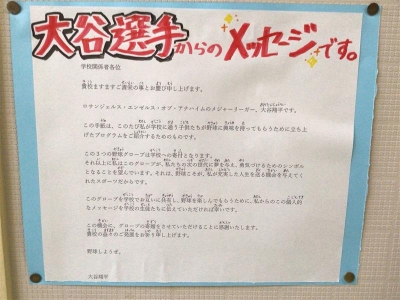 大谷選手からのメッセージです。
学校関係者各位
貴校ますますご清栄の事とお慶び申し上げます。
ロサンジェルス・エンゼルス・オブ・アナハイムのメジャーリーガー、大谷翔平です。
この手紙は、このたび私が学校に通う子供たちが野球に興味を持ってもらうために立ち上
げたプログラムをご紹介するためのものです。
この3つの野球グローブは学校への寄付となります。
それ以上に私はこのグローブが、私たちの次の世代に夢を与え、勇気づけるためのシンボル
となることを望んでいます。それは、野球こそが、私が充実した人生を送る機会を与えてく
れたスポーツだからです。
このグローブを学校でお互いに共有し、野球を楽しんでもらうために、私からのこの個人的
なメッセージを学校の生徒たちに伝えていただければ幸いです。
この機会に、グローブを寄贈させていただけることに感謝いたします。
貴校の益々のご発展をお祈り申し上げます。
野球しようぜ。
大谷翔平